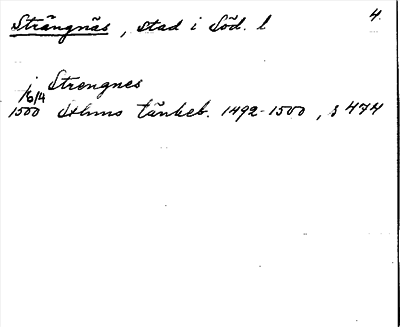 4.
Strängnäs, stad i Söd. l
i Strengnes
16/4
1500 Sthms tänkeb. 1492-1500, s 474